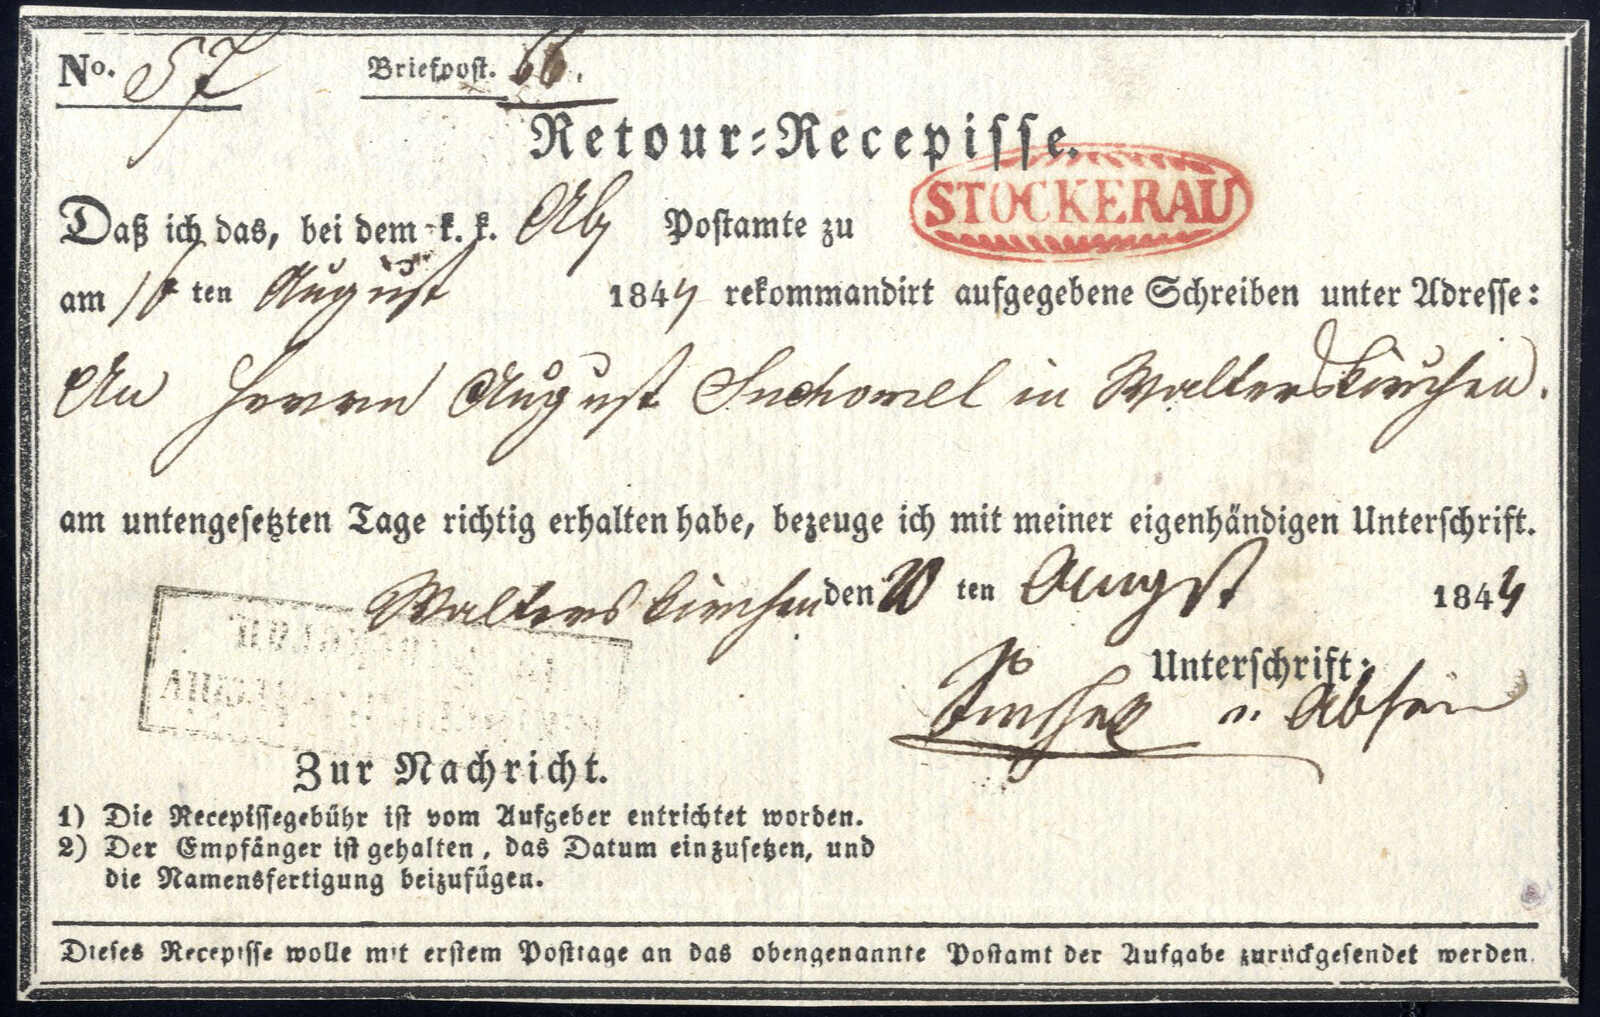 No. 57 Briefpost. 66.
Retour-Recepisse.
Daß ich das, bei dem k. k. Abs Postamte zu STOCKERAU
am ten August 1844 rekommandirt aufgegebene Schreiben unter Adresse:
An Herrn August Suchomel in Walterskirchen.
am untengesetzten Tage richtig erhalten habe, bezeuge ich mit meiner eigenhändigen Unterschrift.
Walterskirchen den 20 ten August 1844
Unterschrift:
Zur Nachricht.
1) Die Recepissegebühr ist vom Aufgeber entrichtet worden.
2) Der Empfänger ist gehalten, das Datum einzusetzen, und
die Namensfertigung beizufügen.
Dieses Recepisse wolle mit erstem Posttage an das obengenannte Postamt der Aufgabe zurückgesendet werden.